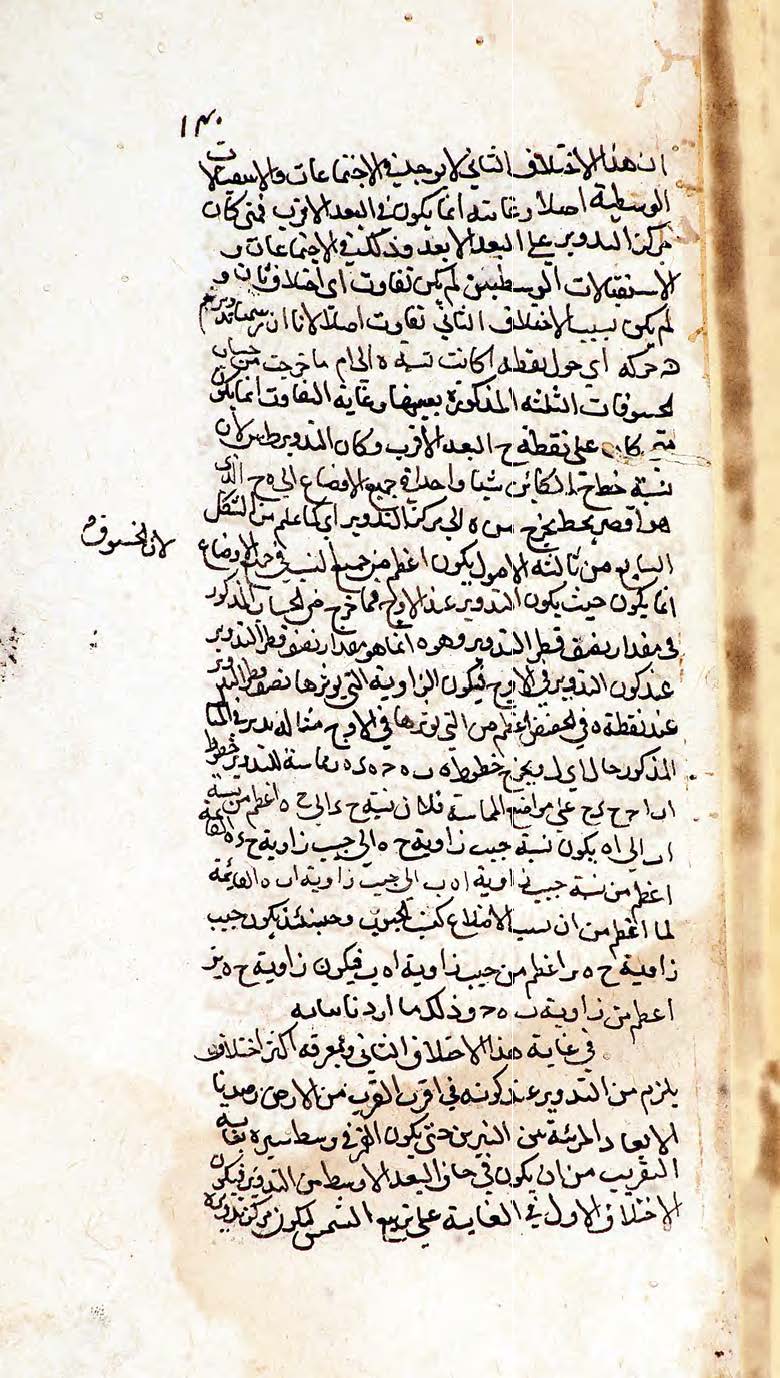 ١٣٠
ان هذا الاختلاف الثاني لا يوجد في الاجتماعات والاستقبالات
الوسطية اصلا وغايته انما يكون في البعد الاقرب فمتى كان
مركز التدوير على البعد الابعد وذلك في الاجتماعات و
الاستقبالات الوسطيين لم يكن تفاوت اى اختلاف ثان و
لم يكن بسبب الاختلاف الثاني تفاوت اصلا لانا ان رسمنا تدوير
حركه اي حول نقطه ا كانت نسبة ه ا الى ام ما خرجت من حساب
لخسوفات الثلثه المذكورة بعينها وغاية التفاوت انما يكون
متى كان على نقطة ح البعد الاقرب وكان التدوير لان
نسبة خط الكائن شيئا واحدا في جميع الاوضاع الى ه ح الذى
هو اقصر خط يخرج من ه الى مركز التدوير اي كما علم من الشكل
السابع من ثالثه الاصول يكون اعظم من جميع النسب في جميع الاوضاع
لان الخسوف
انما يكون حيث يكون التدوير عند الاوج فما خرج من الحساب المذكور
في مقدار نصف قطر التدوير وهو انما هو مقدار نصف قطر التدوير
عند كون التدوير في الاوج فيكون الزاوية التي يوترها نصف قطر التدوير
عند نقطة ه في الحضيض اعظم من التي يوترها في الاوج مثاله ندير في الشكل
المذكور حال اى ل ويخرج خطوط ه ب ه ح ه ء ه ر مماسة للتدوير وخطوط
اب ا ح ح ء ح على مواضع المماسة فلان نسبة ح ء الى ح ه اعظم من نسبة
اب الى اه يكون نسبة جيب زاوية ح ه الى جيب زاوية ح ء ه القائمة
اعظم من نسبة جيب زاوية ا ه ب الى جيب زاوية ا ب ه القائمة
لما اعظم من ان نسب الاضلاع كنسب الجيوب وحينئذ يكون جيب
زاوية ح ه ر اعظم من جيب زاوية ا ه ب فيكون زاوية ح ه
اعظم من زاوية ب ه ح وذلك ما اردنا بيانه
في غاية هذا الاختلاف الثاني ولمعرفه اكثر اختلاف
يلزم من التدوير عند كونه في اقرب القرب من الارض رصدنا
الابعاد المرئية من النيرين حتى يكون القمر في وسط سيره بغاية
التقريب من ان يكون في حاق البعد الاوسط من التدوير فيكون
الاختلاف الاول في الغاية على تربيع الشمس ليكون مركز تدويره